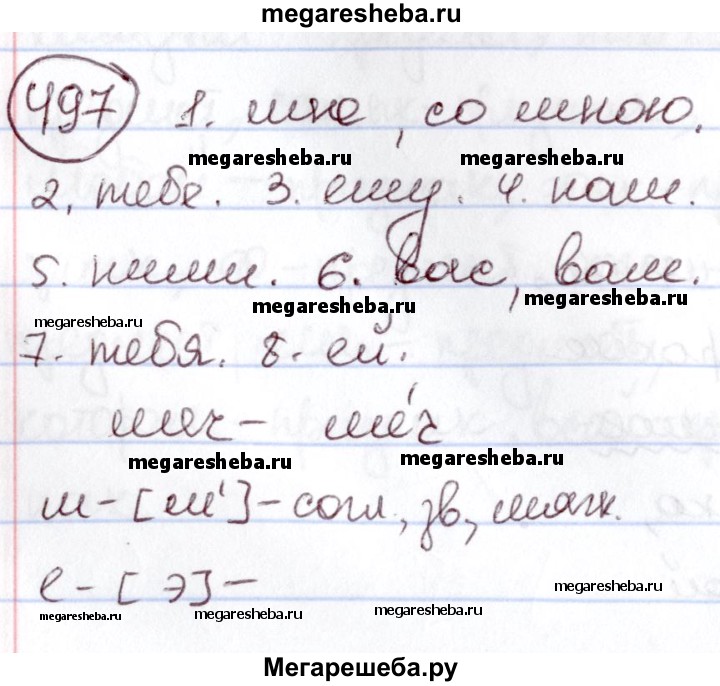 megaresheba.ru
497 1. мне, со мною.
megaresheba.ru megaresheba.ru
2. тебе. 3. ему. 4. нам.
5. ними. 6. вас, вам.
megaresheba.ru megaresheba.ru
megaresheba.ru
7. тебя. 8. ей.
меч – ме́ч
megaresheba.ru megaresheba.ru
м – [м'] – согл., зв, мягк.
е – [э] –
megaresheba.ru megaresheba.ru megaresheba.ru megaresheba.ru
Мегарешеба.ру